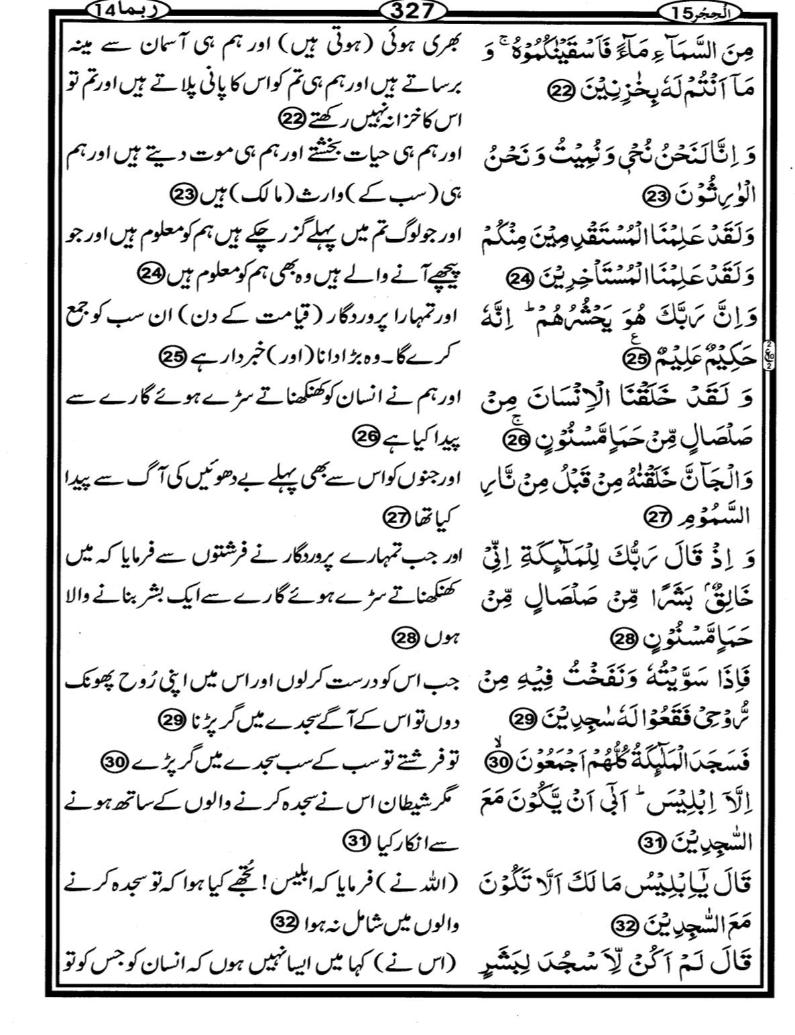 اَلْحِجْر 15
327
رُبَمَا 14
مِنَ السَّمَآءِ مَآءً فَاَسْقَيْنٰكُمُوْهُ ۚ وَ
مَاۤ اَنْتُمْ لَهٗ بِخٰزِنِيْنَ 22
وَ اِنَّا لَنَحْنُ نُحْيٖ وَ نُمِيْتُ وَ نَحْنُ
الْوٰرِثُوْنَ 23
وَ لَقَدْ عَلِمْنَا الْمُسْتَقْدِمِيْنَ مِنْكُمْ
وَ لَقَدْ عَلِمْنَا الْمُسْتَاْخِرِيْنَ 24
وَ اِنَّ رَبَّكَ هُوَ يَحْشُرُهُمْ ؕ اِنَّهٗ
حَكِيْمٌ عَلِيْمٌ 25
وَ لَقَدْ خَلَقْنَا الْاِنْسَانَ مِنْ
صَلْصَالٍ مِّنْ حَمَاٍ مَّسْنُوْنٍ ۚ 26
وَ الْجَآنَّ خَلَقْنٰهُ مِنْ قَبْلُ مِنْ نَّارِ
السَّمُوْمِ 27
وَ اِذْ قَالَ رَبُّكَ لِلْمَلٰٓئِكَةِ اِنِّيْ
خَالِقٌۢ بَشَرًا مِّنْ صَلْصَالٍ مِّنْ
حَمَاٍ مَّسْنُوْنٍ 28
فَاِذَا سَوَّيْتُهٗ وَ نَفَخْتُ فِيْهِ مِنْ
رُّوْحِيْ فَقَعُوْا لَهٗ سٰجِدِيْنَ 29
فَسَجَدَ الْمَلٰٓئِكَةُ كُلُّهُمْ اَجْمَعُوْنَ ۙ 30
اِلَّاۤ اِبْلِيْسَ ؕ اَبٰۤى اَنْ يَّكُوْنَ مَعَ
السّٰجِدِيْنَ 31
قَالَ يٰۤاِبْلِيْسُ مَا لَكَ اَلَّا تَكُوْنَ
مَعَ السّٰجِدِيْنَ 32
قَالَ لَمْ اَكُنْ لِّاَسْجُدَ لِبَشَرٍ
بھری ہوئی (ہوتی ہیں) اور ہم ہی آسمان سے مینہ
برساتے ہیں اور ہم ہی تم کو اس کا پانی پلاتے ہیں اور تم تو
اس کا خزانہ نہیں رکھتے 22
اور ہم ہی حیات بخشتے اور ہم ہی موت دیتے ہیں اور ہم
ہی (سب کے) وارث (مالک) ہیں 23
اور جو لوگ تم میں پہلے گزر چکے ہیں ہم کو معلوم ہیں اور جو
پیچھے آنے والے ہیں وہ بھی ہم کو معلوم ہیں 24
اور تمہارا پروردگار (قیامت کے دن) ان سب کو جمع
کرے گا۔ وہ بڑا دانا (اور) خبردار ہے 25
اور ہم نے انسان کو کھنکھناتے سڑے ہوئے گارے سے
پیدا کیا ہے 26
اور جنوں کو اس سے بھی پہلے بے دھوئیں کی آگ سے پیدا
کیا تھا 27
اور جب تمہارے پروردگار نے فرشتوں سے فرمایا کہ میں
کھنکھناتے سڑے ہوئے گارے سے ایک بشر بنانے والا
ہوں 28
جب اس کو درست کر لوں اور اس میں اپنی رُوح پھونک
دوں تو اس کے آگے سجدے میں گر پڑنا 29
تو فرشتے تو سب کے سب سجدے میں گر پڑے 30
مگر شیطان اس نے سجدہ کرنے والوں کے ساتھ ہونے
سے انکار کیا 31
(اللہ نے) فرمایا کہ ابلیس! تجھے کیا ہوا کہ تو سجدہ کرنے
والوں میں شامل نہ ہوا 32
(اس نے) کہا میں ایسا نہیں ہوں کہ انسان کو جس کو تو